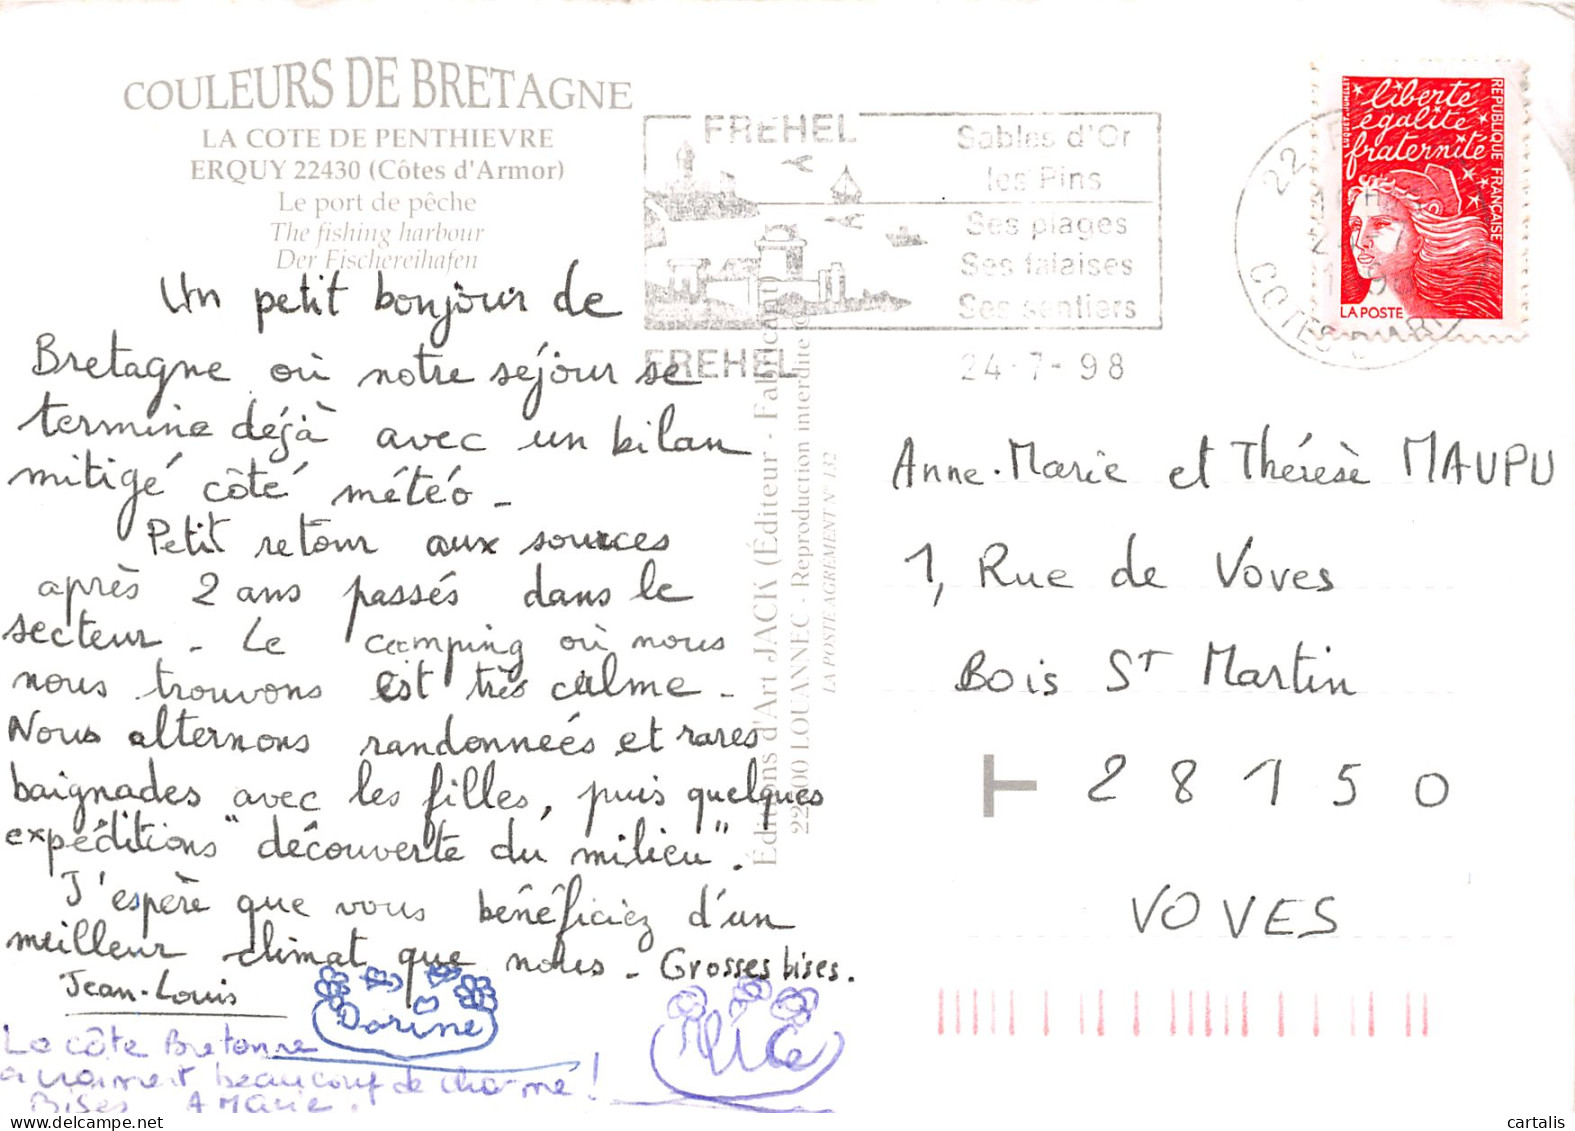 COULEURS DE BRETAGNE
LA COTE DE PENTHIEVRE
ERQUY 22430 (Côtes d'Armor)
Le port de pêche
The fishing harbour
Der Fischereihafen
Un petit bonjour de
Bretagne où notre séjour se
termine déjà avec un bilan
mitigé côté météo -
Petit retour aux sources
après 2 ans passés dans le
secteur - Le camping où nous
nous trouvons est très calme -
Nous alternons randonnées et rares
baignades avec les filles, puis quelques
expéditions "découverte du milieu".
J'espère que vous bénéficiez d'un
meilleur climat que nous - Grosses bises.
Jean-Louis
Dorine
Alice
La côte Bretonne
a vraiment beaucoup de charme !
Bises AMarie.
Éditions d'Art JACK (Éditeur - Fabricant)
22700 LOUANNEC - Reproduction interdite ©
LA POSTE AGRÉMENT N° 132
FREHEL
Sables d'Or
les Pins
Ses plages
Ses falaises
Ses sentiers
FREHEL
24-7-98
22
COTES D'AR
liberté
égalité
fraternité
RÉPUBLIQUE FRANÇAISE
LA POSTE
Anne-Marie et Thérèse MAUPU
1, Rue de Voves
Bois St Martin
28150
VOVES
cartalis